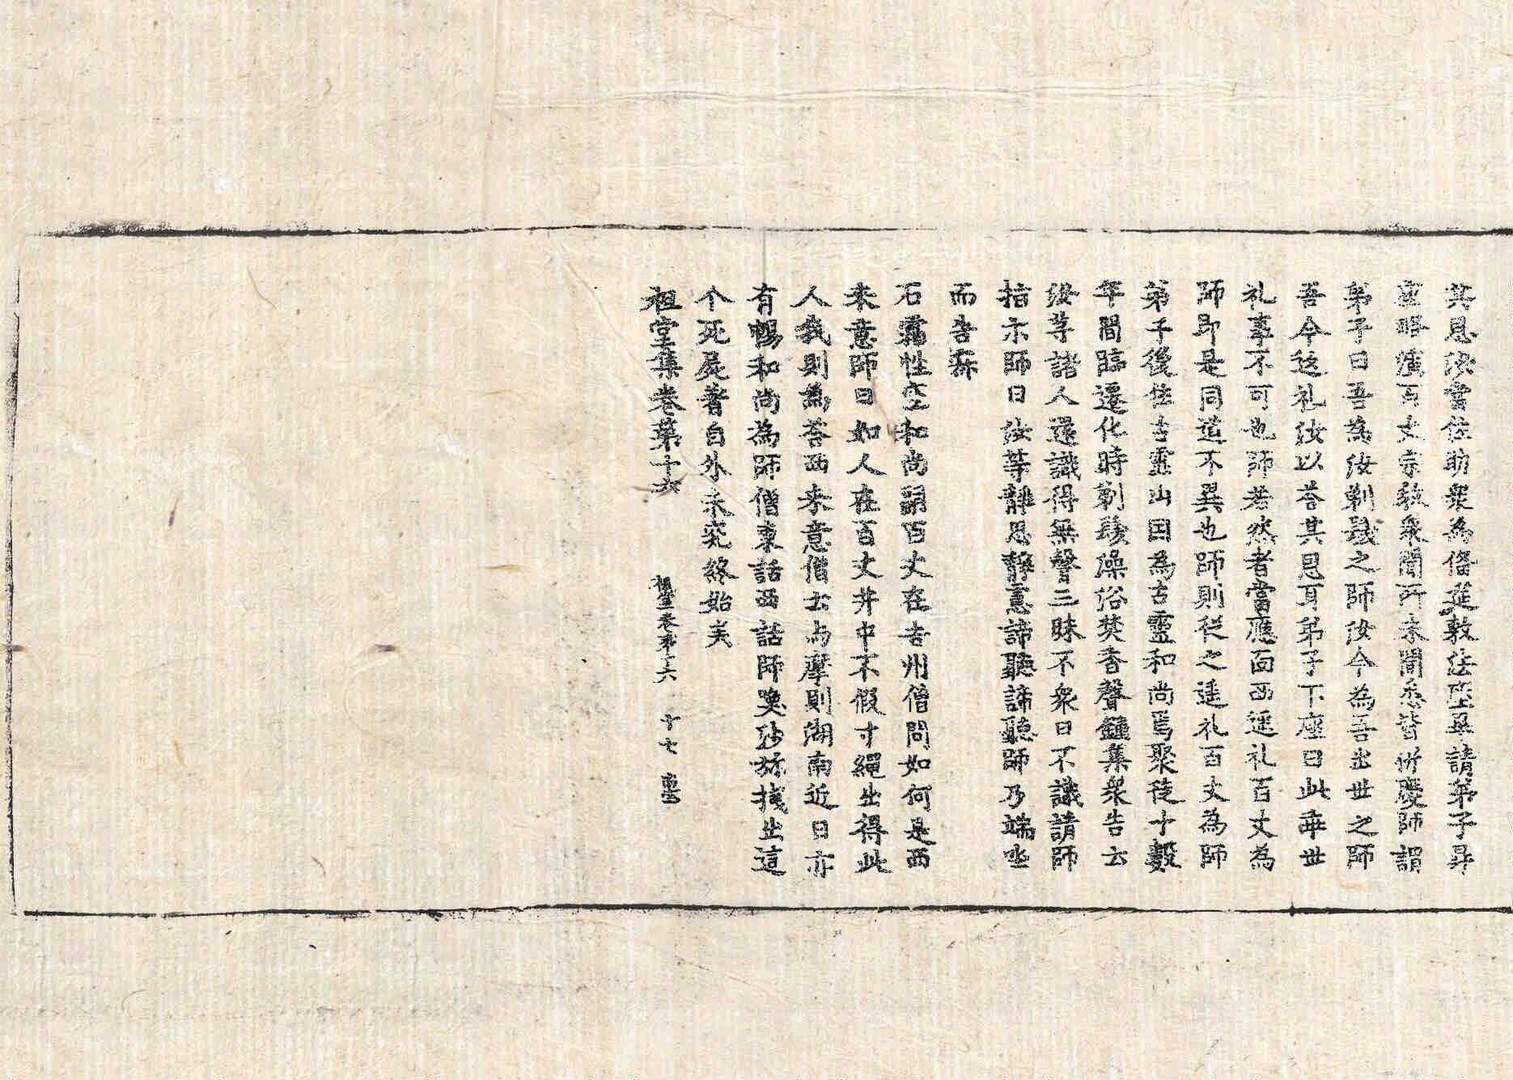 其恩汝當住助衆為俻莚敷法座再請弟子昇
座略演百丈宗教衆聞所未聞悉皆忻慶師謂
弟子曰吾為汝剃髮之師汝今為吾出世之師
吾今返礼汝以荅其恩耳弟子下座曰此乖世
礼事不可也師若然者當應面西遥礼百丈為
師即是同道不異也師則從之遥礼百丈為師
弟子後住古靈山因為古靈和尚焉聚徒十數
年間臨遷化時剃髮澡俗焚香聲鍾集衆告云
汝等諸人還識得無聲三昧不衆曰不識請師
指示師曰汝等静思静慮諦聽諦聽師乃端坐
而告𡧯
石霜性空和尚嗣百丈在吉州僧問如何是西
来意師曰如人在百丈井中不假寸繩出得此
人我則為荅西来意僧云与摩則湖南近日亦
有暢和尚為師僧東話西話師喚沙弥拽出這
个死屍著自外未究終始矣
祖堂集卷第十六
祖堂卷第十六 十七